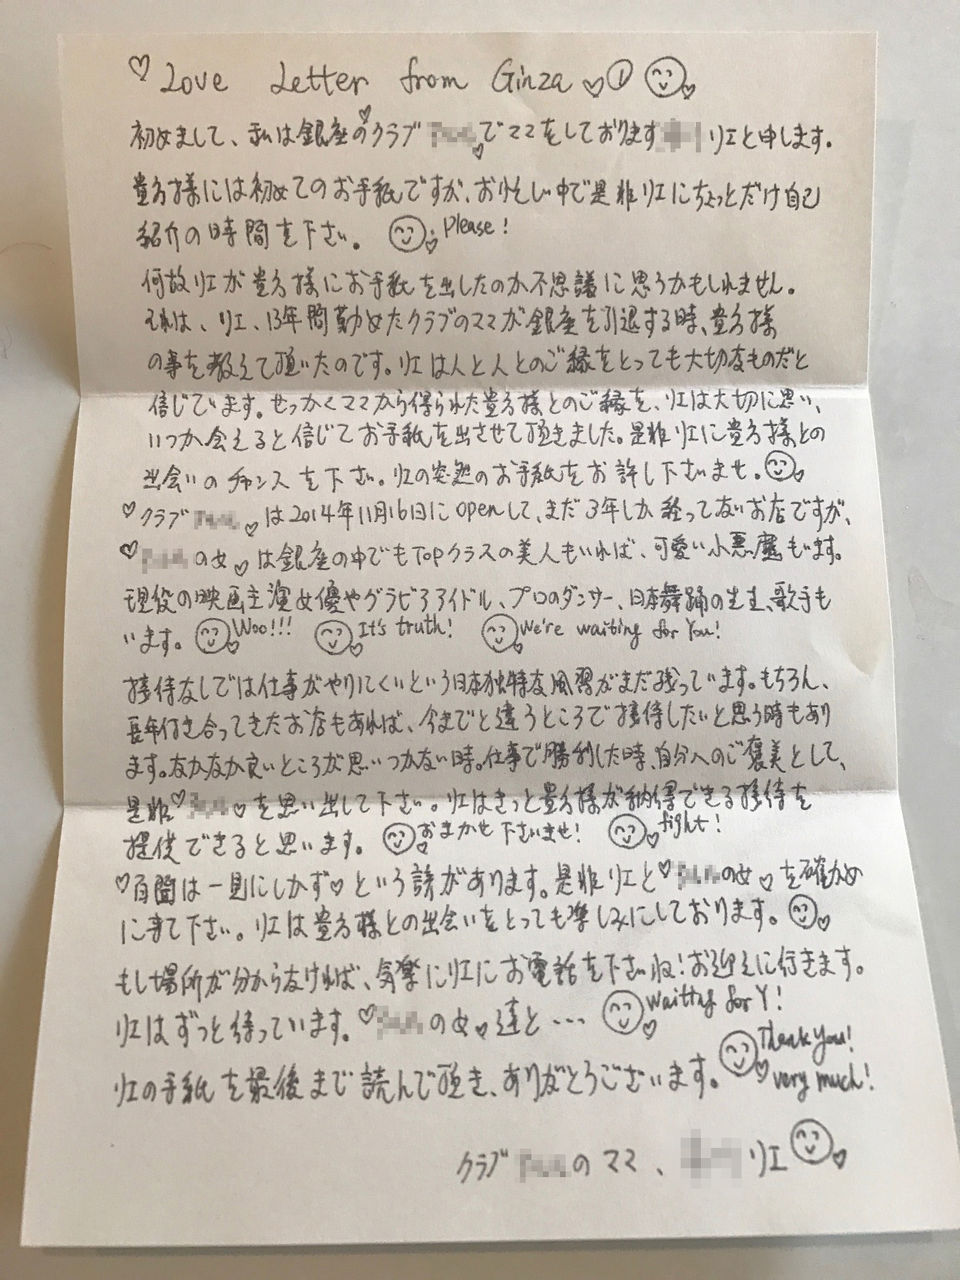 ♡ Love Letter from Ginza ♡①
初めまして、私は銀座の♡クラブ♡でママをしております リエと申します。
貴方様には初めてのお手紙ですが、お忙しい中で是非リエにちょっとだけ自己
紹介の時間を下さい。 Please!
何故リエが貴方様にお手紙を出したのか不思議に思うかもしれません。
それは、リエ、13年間勤めたクラブのママが銀座を引退する時、貴方様
の事を教えて頂いたのです。リエは人と人とのご縁をとっても大切なものだと
信じています。せっかくママから得られた貴方様とのご縁を、リエは大切に思い、
いつか会えると信じてお手紙を出させて頂きました。是非リエに貴方様との
出会いのチャンスを下さい。リエの突然のお手紙をお許し下さいませ。
♡クラブ♡は2014年11月16日にopenして、まだ3年しか経ってないお店ですが、
♡の女♡は銀座の中でもTopクラスの美人もいれば、可愛い小悪魔もいます。
現役の映画主演女優やグラビアアイドル、プロのダンサー、日本舞踊の先生、歌手も
います。 Woo!!! It's truth! We're waiting for You!
接待なしでは仕事がやりにくいという日本独特な風習がまだ残っています。もちろん、
長年付き合ってきたお店もあれば、今までと違うところで接待したいと思う時もあり
ます。なかなか良いところが思いつかない時。仕事で勝利した時、自分へのご褒美として、
是非♡♡を思い出して下さい。リエはきっと貴方様が納得できる接待を
提供できると思います。 おまかせ下さいませ! fight!
♡百聞は一見にしかず♡という諺があります。是非リエと♡の女♡を確かめ
に来て下さい。リエは貴方様との出会いをとっても楽しみにしております。
もし場所が分からなければ、気楽にリエにお電話を下さいね!お迎えに行きます。
リエはずっと待っています。♡の女♡達と… waiting for Y!
リエの手紙を最後まで読んで頂き、ありがとうございます。 Thank you! very much!
クラブのママ、 リエ